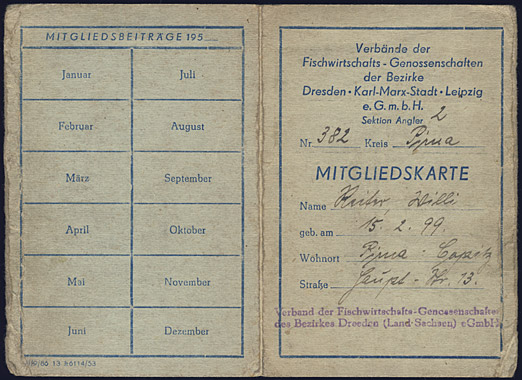 MITGLIEDSBEITRÄGE 195
Januar Juli
Februar August
März September
April Oktober
Mai November
Juni Dezember
Verbände der
Fischwirtschafts-Genossenschaften
der Bezirke
Dresden·Karl-Marx-Stadt·Leipzig
e.G.m.b.H.
Sektion Angler 2
Nr. 382 Kreis Pirna
MITGLIEDSKARTE
Name Willi
geb. am 15. 2. 99.
Wohnort Pirna-Copitz
Straße Haupt-Str. 13.
Verband der Fischwirtschafts-Genossenschaften
des Bezirkes Dresden (Land Sachsen) eGmbH